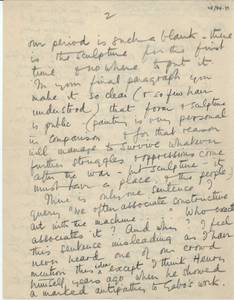 2
our period is such a blank - there
is the sculpture for the first
time & nowhere to put it
In your final paragraph you
make it so clear (& so few have
understood) that form & sculpture
is public (painting is very personal
in comparison & for that reason
will manage to survive whatever
further struggles & oppressions come
after the war - but sculpture - it
must have a place & the people)
There is only one sentence I
query "We often associate constructive
art with the machine". Who
associates it? And when? I feel
this sentence misleading as I have
never heard one of our crowd
mention this view except I think Henry
himself years ago when he showed
a marked antipathy to Gabo's work.